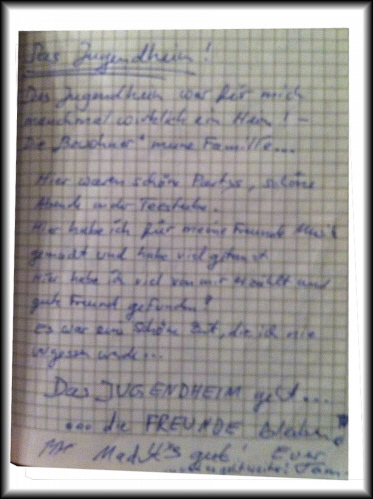 Das Jugendheim!
Das Jugendheim war für mich
manchmal wirklich ein Heim! -
Die "Bewohner" meine Familie...
Hier waren schöne Partys, schöne
Abende in der Teestube.
Hier habe ich für meine Freunde Musik
gemacht und habe viel getanzt
Hier habe ich viel von mir erzählt und
gute Freunde gefunden!
Es war eine schöne Zeit, die ich nie
vergessen werde...
Das JUGENDHEIM geht...
... die FREUNDE bleiben!
Macht's gut! Euer